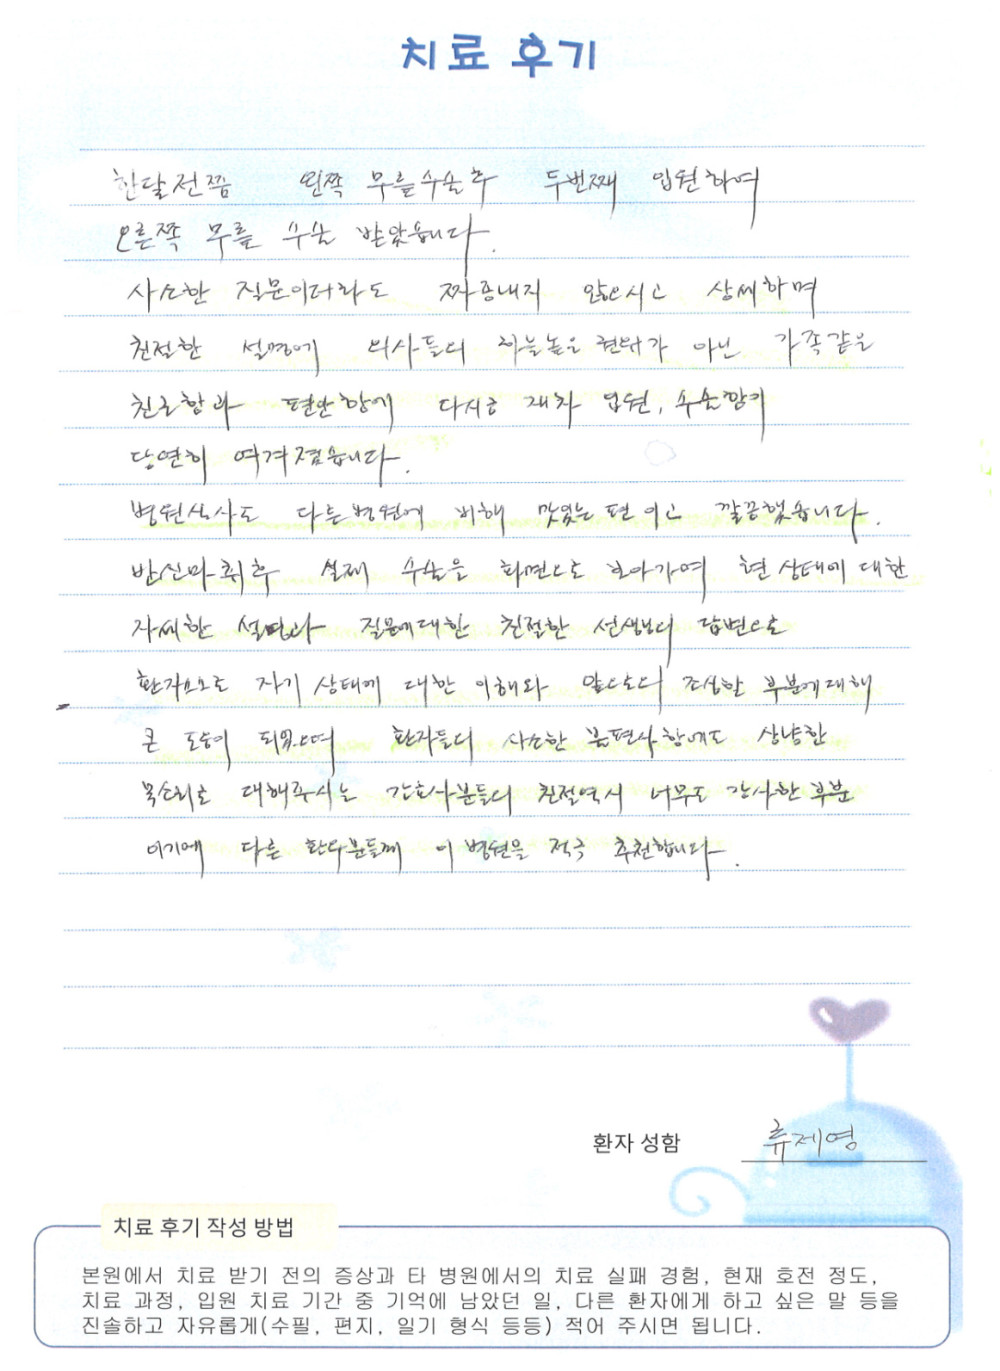 치료 후기
한달전쯤 왼쪽 무릎수술후 두번째 입원하여
오른쪽 무릎 수술 받았습니다.
사소한 질문이더라도 짜증내지 않으시고 상세하며
친절한 설명에 의사들의 하늘높은 권위가 아닌 가족같은
친근함과 편안함에 다시금 재차 입원, 수술함이
당연히 여겨졌습니다.
병원식사도 다른병원에 비해 맛있는 편이고 깔끔했습니다.
반신마취후 실제 수술을 화면으로 보아가며 현 상태에 대한
자세한 설명과 질문에대한 친절한 선생님의 답변으로
환자으로 자기 상태에 대한 이해와 앞으로의 조심할 부분에대해
큰 도움이 되었으며 환자들의 사소한 불편사항에도 상냥한
목소리로 대해주시는 간호사분들의 친절역시 너무도 감사한 부분
이기에 다른 환자분들께 이 병원을 적극 추천합니다.
환자 성함 류제영
치료 후기 작성 방법
본원에서 치료 받기 전의 증상과 타 병원에서의 치료 실패 경험, 현재 호전 정도,
치료 과정, 입원 치료 기간 중 기억에 남았던 일, 다른 환자에게 하고 싶은 말 등을
진솔하고 자유롭게(수필, 편지, 일기 형식 등등) 적어 주시면 됩니다.